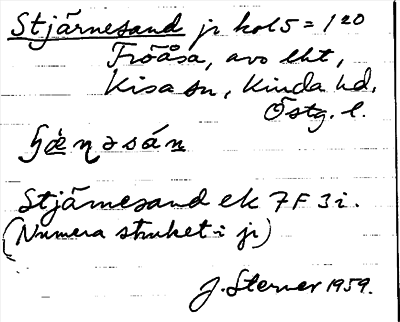 Stjärnesand jr kol 5 = 1/20
Fröåsa, avs lht,
Kisa sn, Kinda hd,
Östg. l.
Stjärnesand ek 7F 3i.
(Numera struket i jr)
J. Sterner 1959.